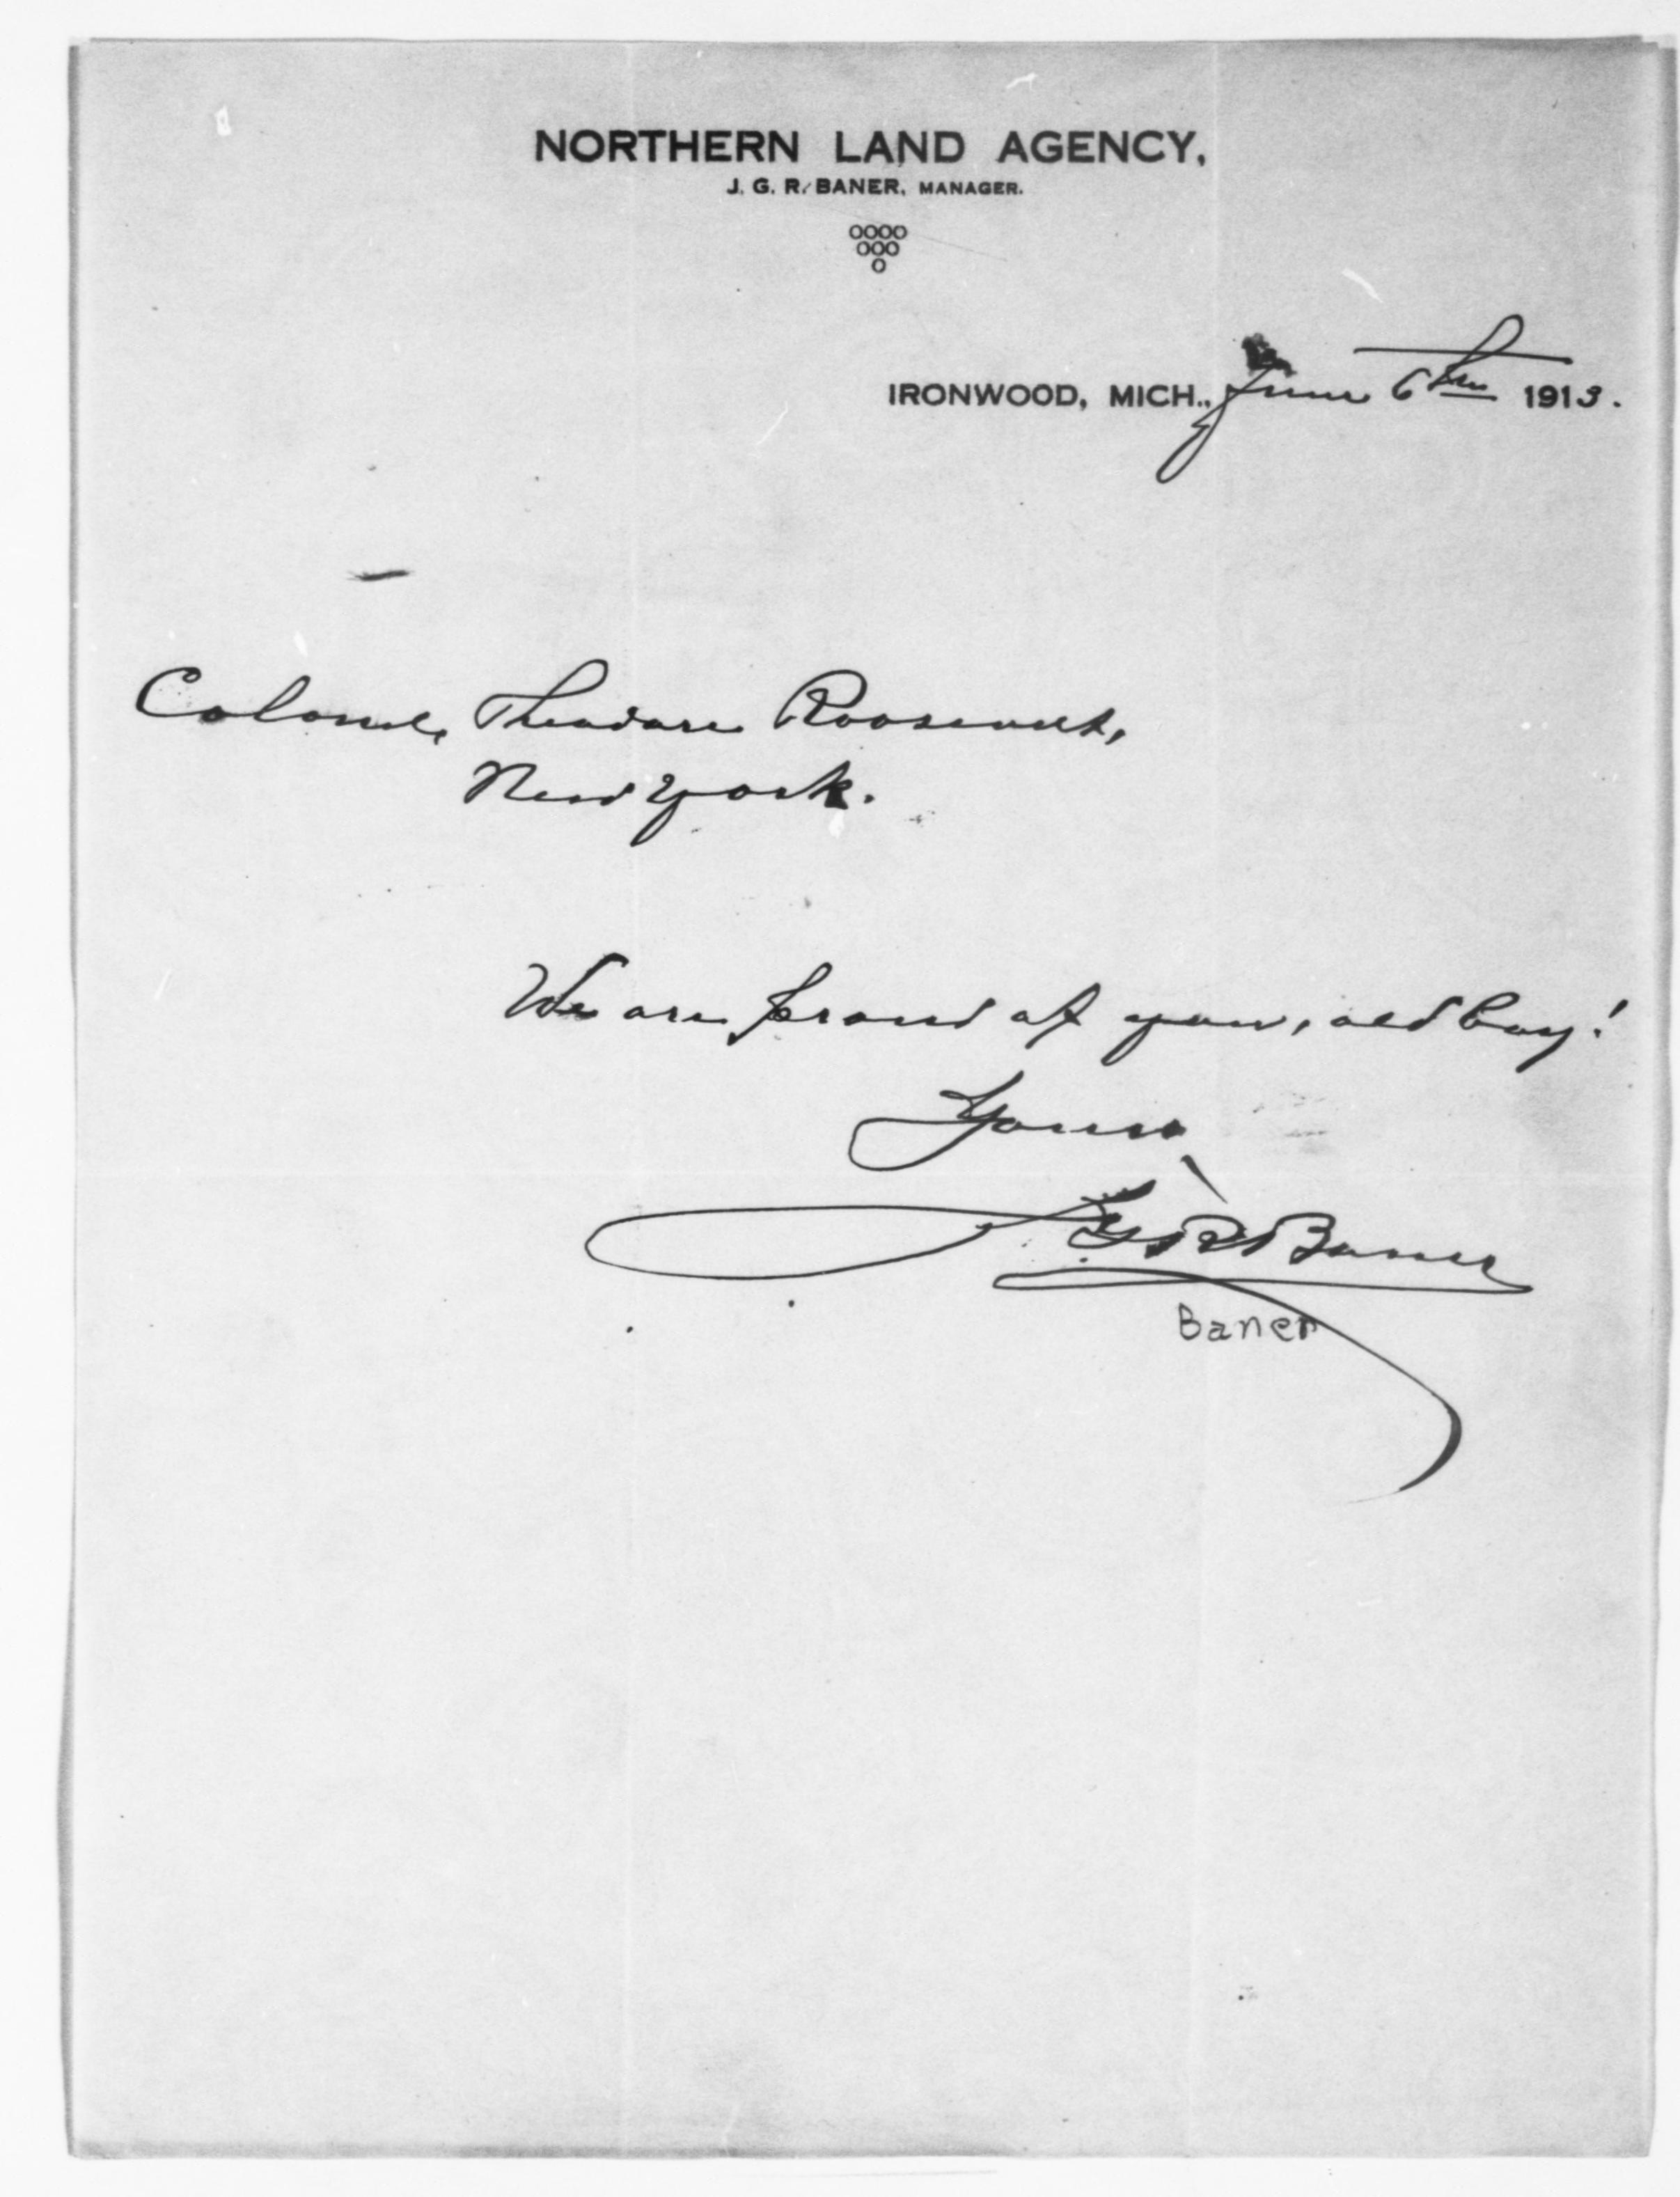 NORTHERN LAND AGENCY,
J. G. R. BANER, MANAGER.
0000
000
0
IRONWOOD, MICH., June 6th 1913.
Colonel Theodore Roosevelt,
New York.
We are proud of you, old boy!
Yours
J. G. R. Baner
Baner